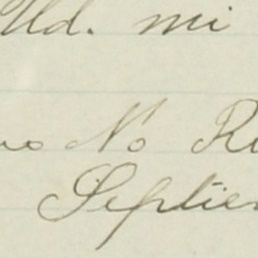 Ud. mi
No R
Septiem